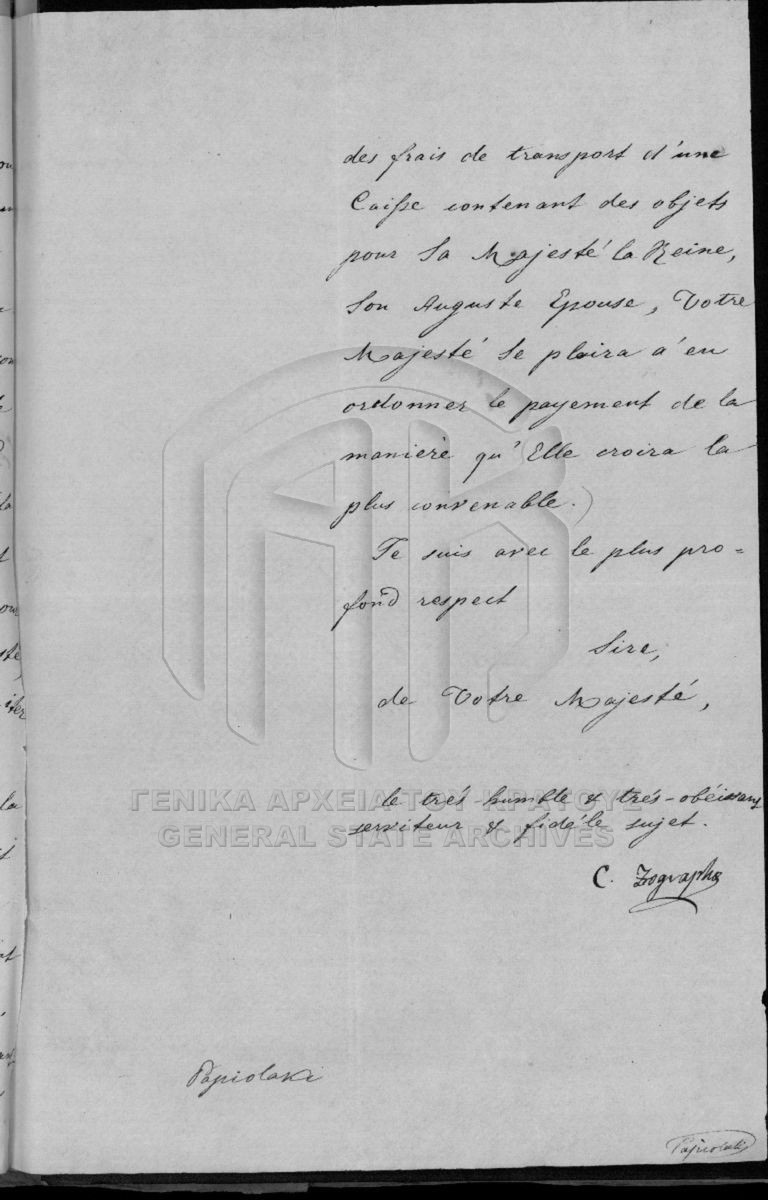 des frais de transport d'une
Caisse contenant des objets
pour Sa Majesté la Reine,
Son Auguste Epouse, Votre
Majesté Se plaira à en
ordonner le payement de la
maniere qu'Elle croira la
plus convenable.)
Je suis avec le plus pro=
fond respect
Sire,
de Votre Majesté,
le trés humble & trés-obéissant
serviteur & fidéle sujet.
C. Zographos
ΓΕΝΙΚΑ ΑΡΧΕΙΑ ΤΟΥ ΚΡΑΤΟΥΣ
GENERAL STATE ARCHIVES
Papiolaki